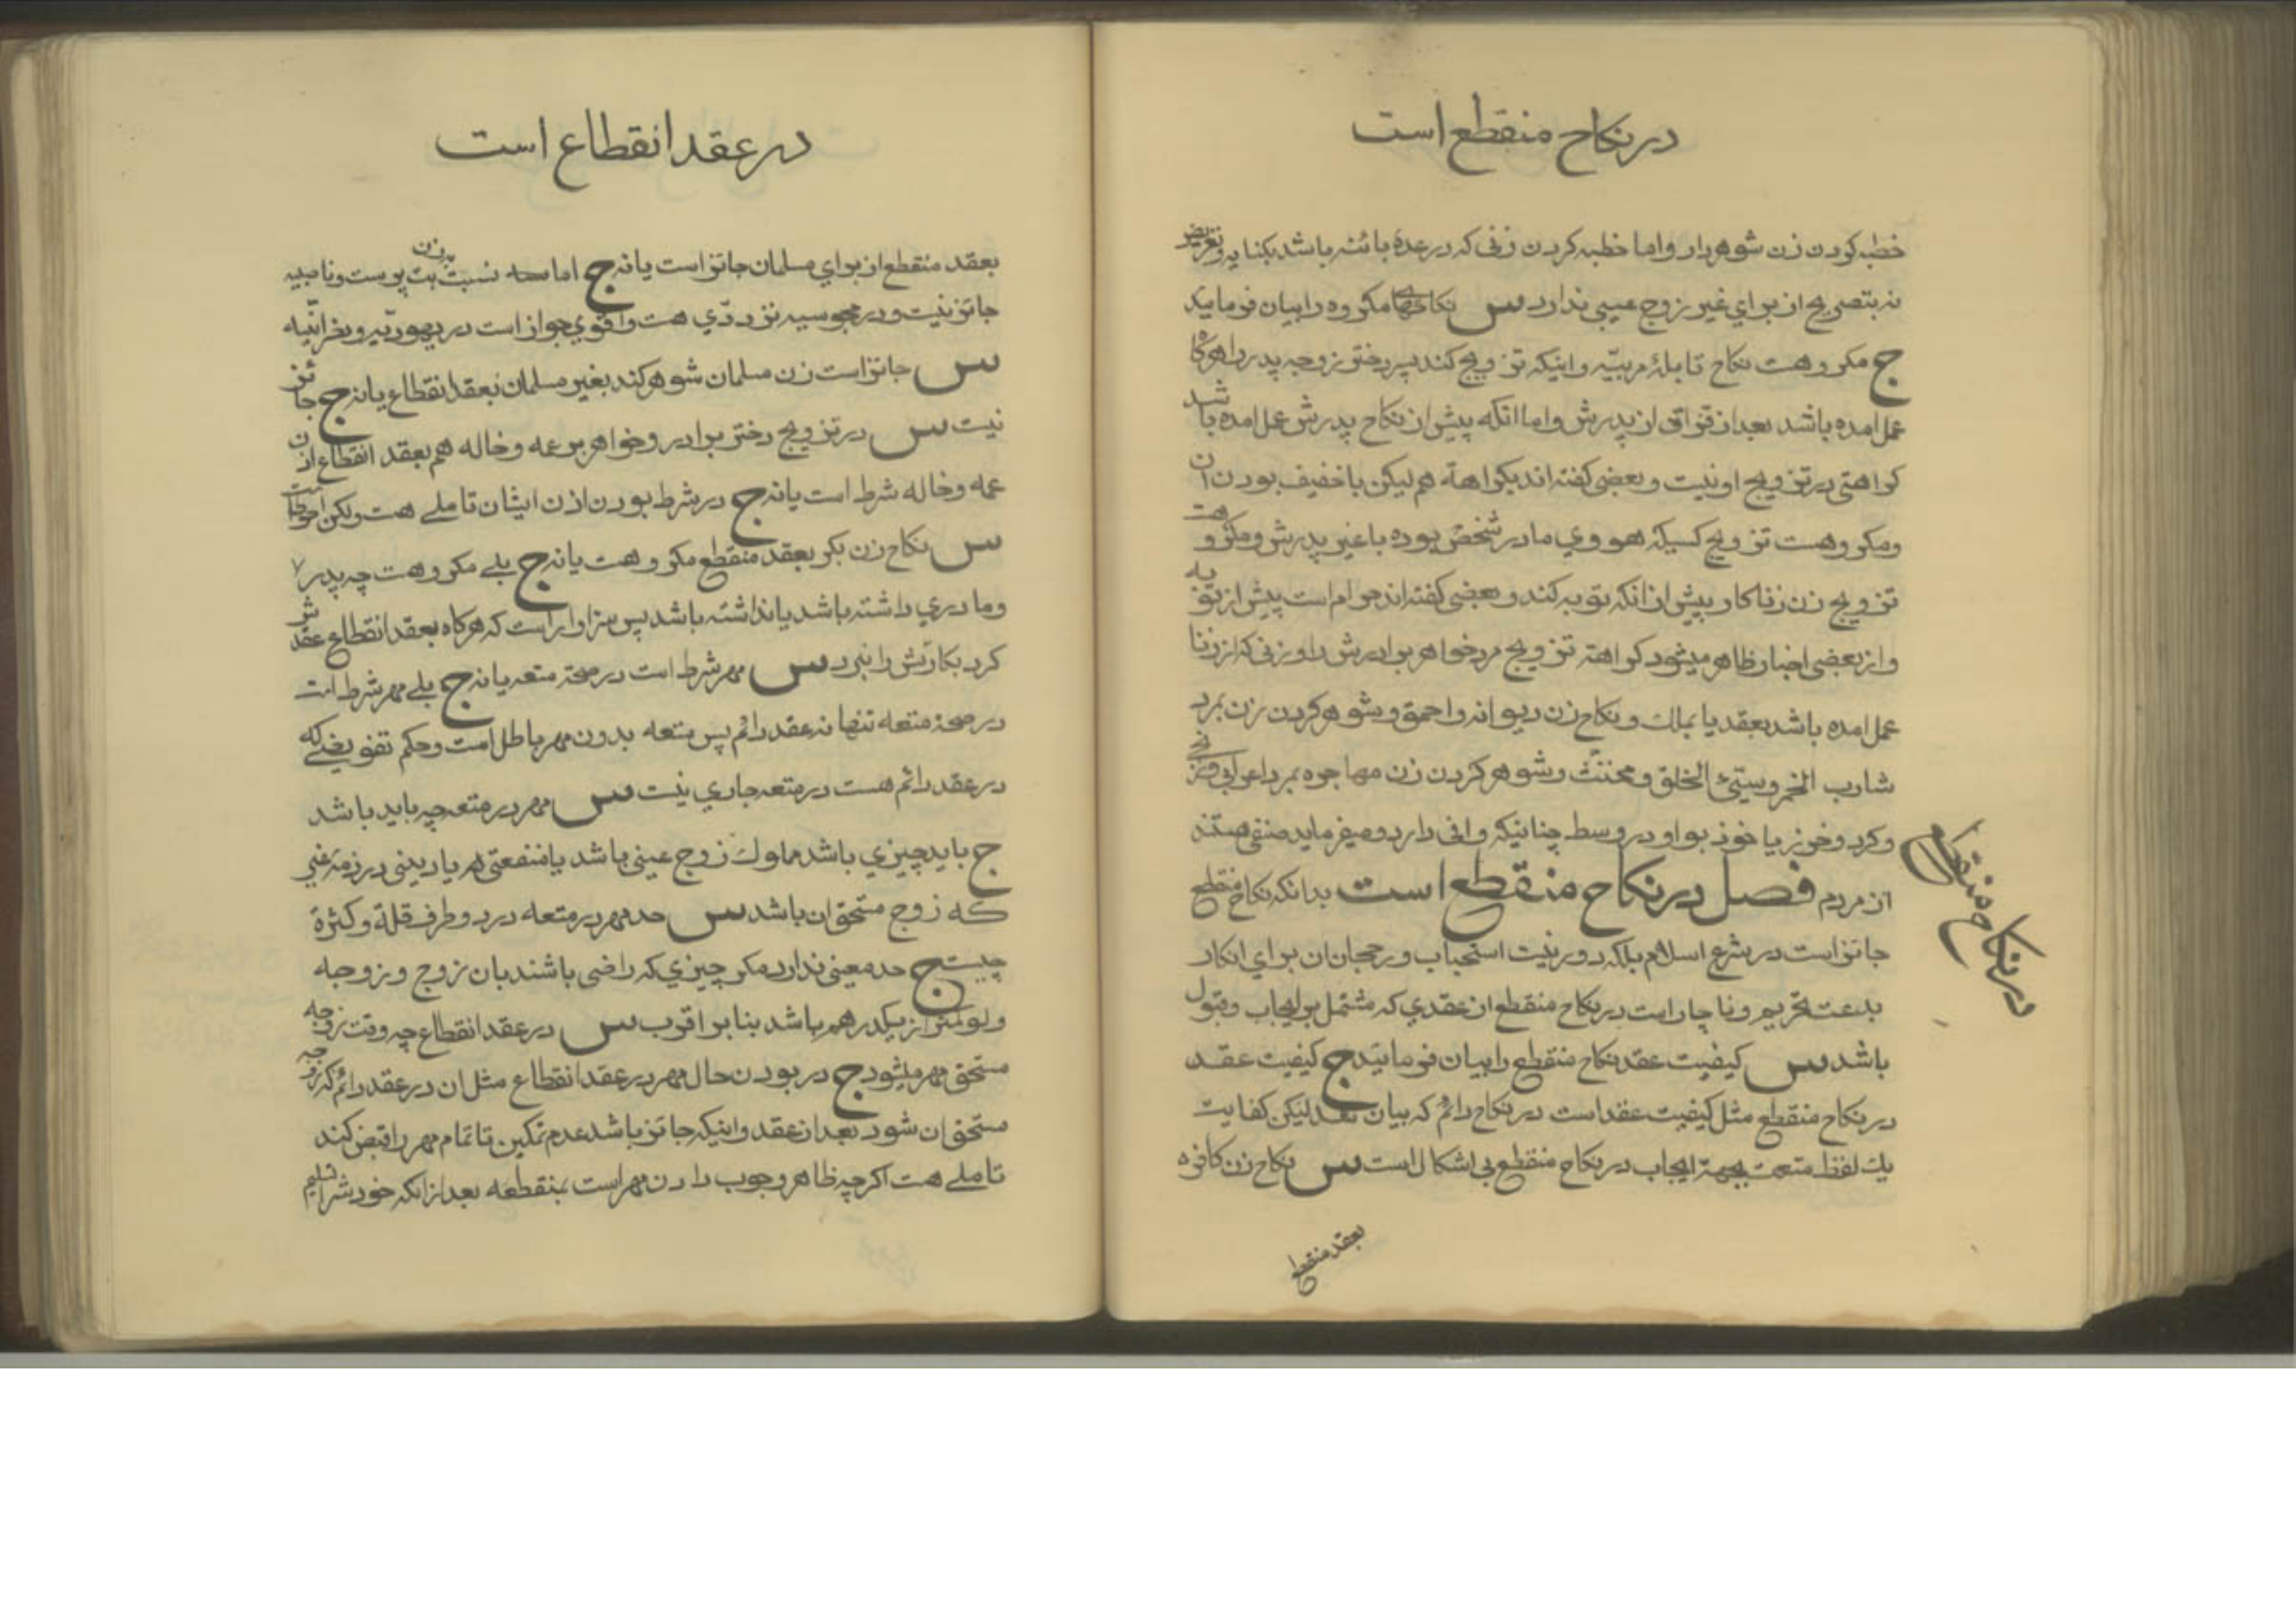 در نکاح منقطع است
خطبه کردن زن شوهردار و اما خطبه کردن زنی که در عدهٔ بائنه باشد بکنایه و تعریض
نه بتصریح از برای غیر زوج عیبی ندارد س نکاحهای مکروه را بیان فرمایید
ج مکروهست نکاح قابلهٔ مربیّه و اینکه تزویج کند پسر دختر زوجه پدر را هرگاه
عمل امده باشد بعد از فراق از پدرش و اما انکه پیش از نکاح پدرش عمل امده باشد
کراهتی در تزویج او نیست و بعضی گفته اند بکراهة هم لیکن با خفیف بودن ان
و مکروهست تزویج کسیکه هووي مادر شخص بوده با غیر پدرش و مکروهست
تزویج زن زناکار پیش از انکه توبه کند و بعضی گفته اند حرام است پیش از توبه
و از بعضی اخبار ظاهر میشود کراهة تزویج مرد خواهر برادرش را و زنی که از زنا
عمل امده باشد بعقد یا بملك و نکاح زن دیوانه و احمق و شوهر کردن زن بمرد
شارب الخمر و سیّئ الخلق و مخنّث و شوهر کردن زن مهاجره بمرد اعرابی و
و کرد و خوز یا خوذ بواو در وسط چنانیکه وافی دارد و میفرماید صنفی هستند
از مردم فصل در نکاح منقطع است بدانکه نکاح منقطع
جائز است در شرع اسلام بلکه دور نیست استحباب و رجحان ان برای انکار
بدعت تحریم و ناچار است در نکاح منقطع از عقدي که مشتمل بر ایجاب و قبول
باشد س کیفیت عقد نکاح منقطع را بیان فرمائید ج کیفیت عقد
در نکاح منقطع مثل کیفیت عقد است در نکاح دائم که بیان شد لیکن کفایت
یك لفظ متعت بجهة ایجاب در نکاح منقطع بی اشکال است س نکاح زن کافره
بعقد منقطع
در نکاح منقطع
در عقد انقطاع است
بعقد منقطع از برای مسلمان جائز است یا نه ج اما نسبت بزن بت پرست و ناصبیه
جائز نیست و در مجوسیه تردّدي هست و اقوي جواز است در یهودیّه و نصرانیّه
س جائز است زن مسلمان شوهر کند بغیر مسلمان بعقد انقطاع یا نه ج جائز
نیست س در تزویج دختر برادر و خواهر بر عمه و خاله هم بعقد انقطاع اذن
عمه و خاله شرط است یا نه ج در شرط بودن اذن ایشان تاملے هست ولکن احوط است
س نکاح زن بکر بعقد منقطع مکروهست یا نه ج بلے مکروهست چه پدر
و مادري داشته باشد یا نداشته باشد پس سزاوار است که هرگاه بعقد انقطاع عقدش
کرد بکارتش را نبرد س مهر شرط است در صحّة متعه یا نه ج بلے مهر شرط است
در صحة متعه تنها نه عقد دائم پس متعه بدون مهر باطل است و حکم تفویضی که
در عقد دائم هست در متعه جاري نیست س مهر در متعه چه باید باشد
ج باید چیزي باشد مملوك زوج عینی باشد یا منفعتی یا دینی در ذمه غیر
که زوج مستحق ان باشد س حد مهر در متعه در دو طرف قلة و کثرة
چیست ج حد معینی ندارد مکر چیزي که راضی باشند بان زوج و زوجه
و لو کمتر از یکدرهم باشد بنا بر اقرب س در عقد انقطاع چه وقت زوجه
مستحق مهر میشود ج در بودن حال مهر در عقد انقطاع مثل ان در عقد دائم که زوجه
مستحق ان شود بعد از عقد و اینکه جائز باشد عدم تمکین تا تمام مهر را قبض کند
تاملے هست اکرچه ظاهر وجوب دادن مهر است بمنقطعه بعد از انکه خودش را تسلیم